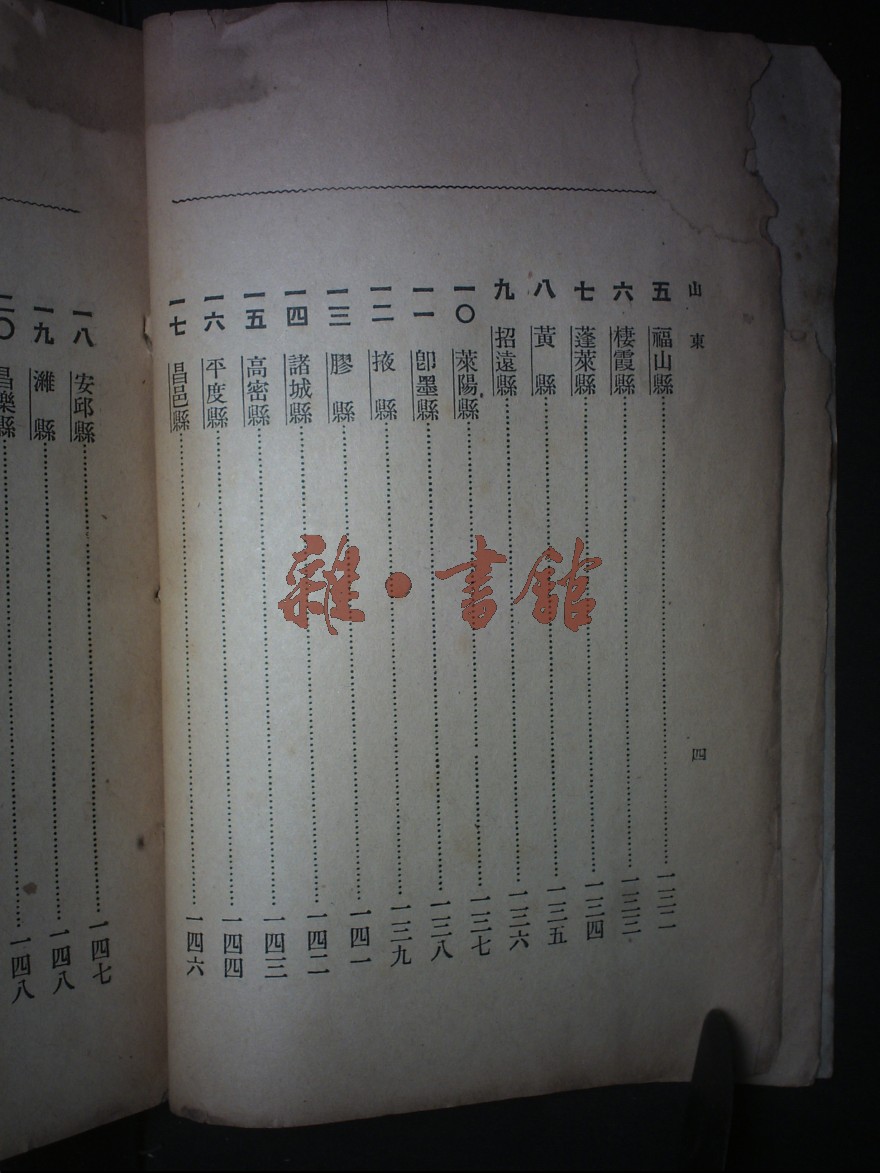 山東
四
五 福山縣 一三二
六 棲霞縣 一三三
七 蓬萊縣 一三四
八 黃縣 一三五
九 招遠縣 一三六
一〇 萊陽縣 一三七
一一 卽墨縣 一三八
一二 掖縣 一三九
一三 膠縣 一四一
一四 諸城縣 一四二
一五 高密縣 一四三
一六 平度縣 一四四
一七 昌邑縣 一四六
一八 安邱縣 一四七
一九 濰縣 一四八
二〇 昌樂縣 一四八
雜·書館